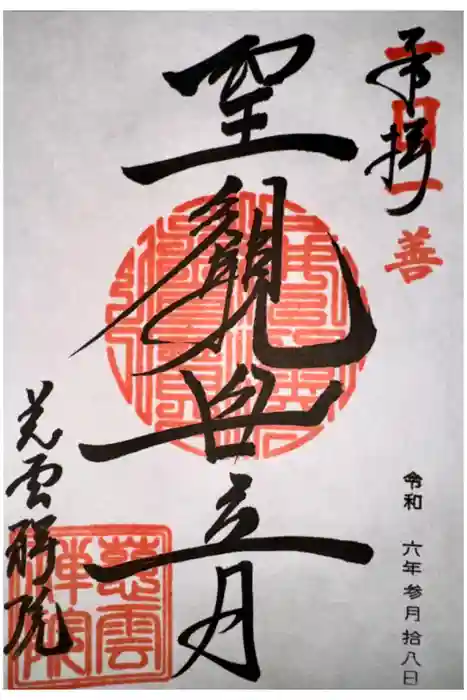 奉拝
一日一善
聖観世音
令和 六年参月拾八日
慈雲禅院
慈雲
禅院